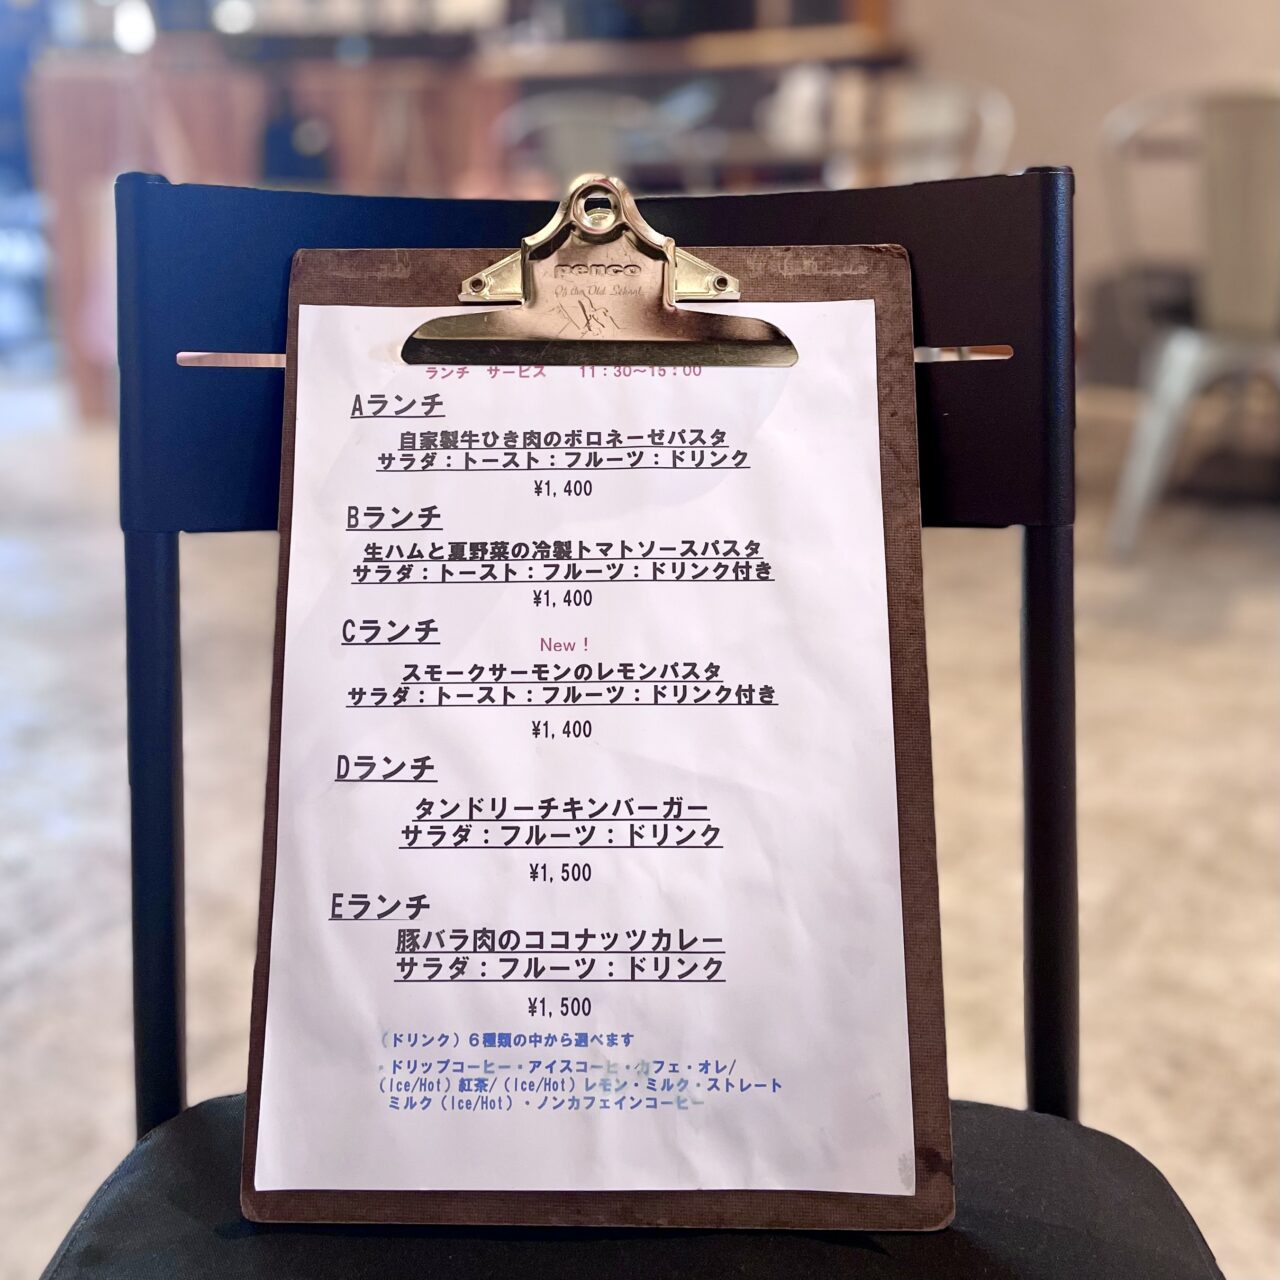 penco
Of the Old School
ランチ サービス 11：30～15：00
Aランチ
自家製牛ひき肉のボロネーゼパスタ
サラダ：トースト：フルーツ：ドリンク
¥1,400
Bランチ
生ハムと夏野菜の冷製トマトソースパスタ
サラダ：トースト：フルーツ：ドリンク付き
¥1,400
Cランチ
New！
スモークサーモンのレモンパスタ
サラダ：トースト：フルーツ：ドリンク付き
¥1,400
Dランチ
タンドリーチキンバーガー
サラダ：フルーツ：ドリンク
¥1,500
Eランチ
豚バラ肉のココナッツカレー
サラダ：フルーツ：ドリンク
¥1,500
（ドリンク）６種類の中から選べます
・ドリップコーヒー・アイスコーヒ・カフェ・オレ/
（Ice/Hot）紅茶/（Ice/Hot）レモン・ミルク・ストレート
ミルク（Ice/Hot）・ノンカフェインコーヒー